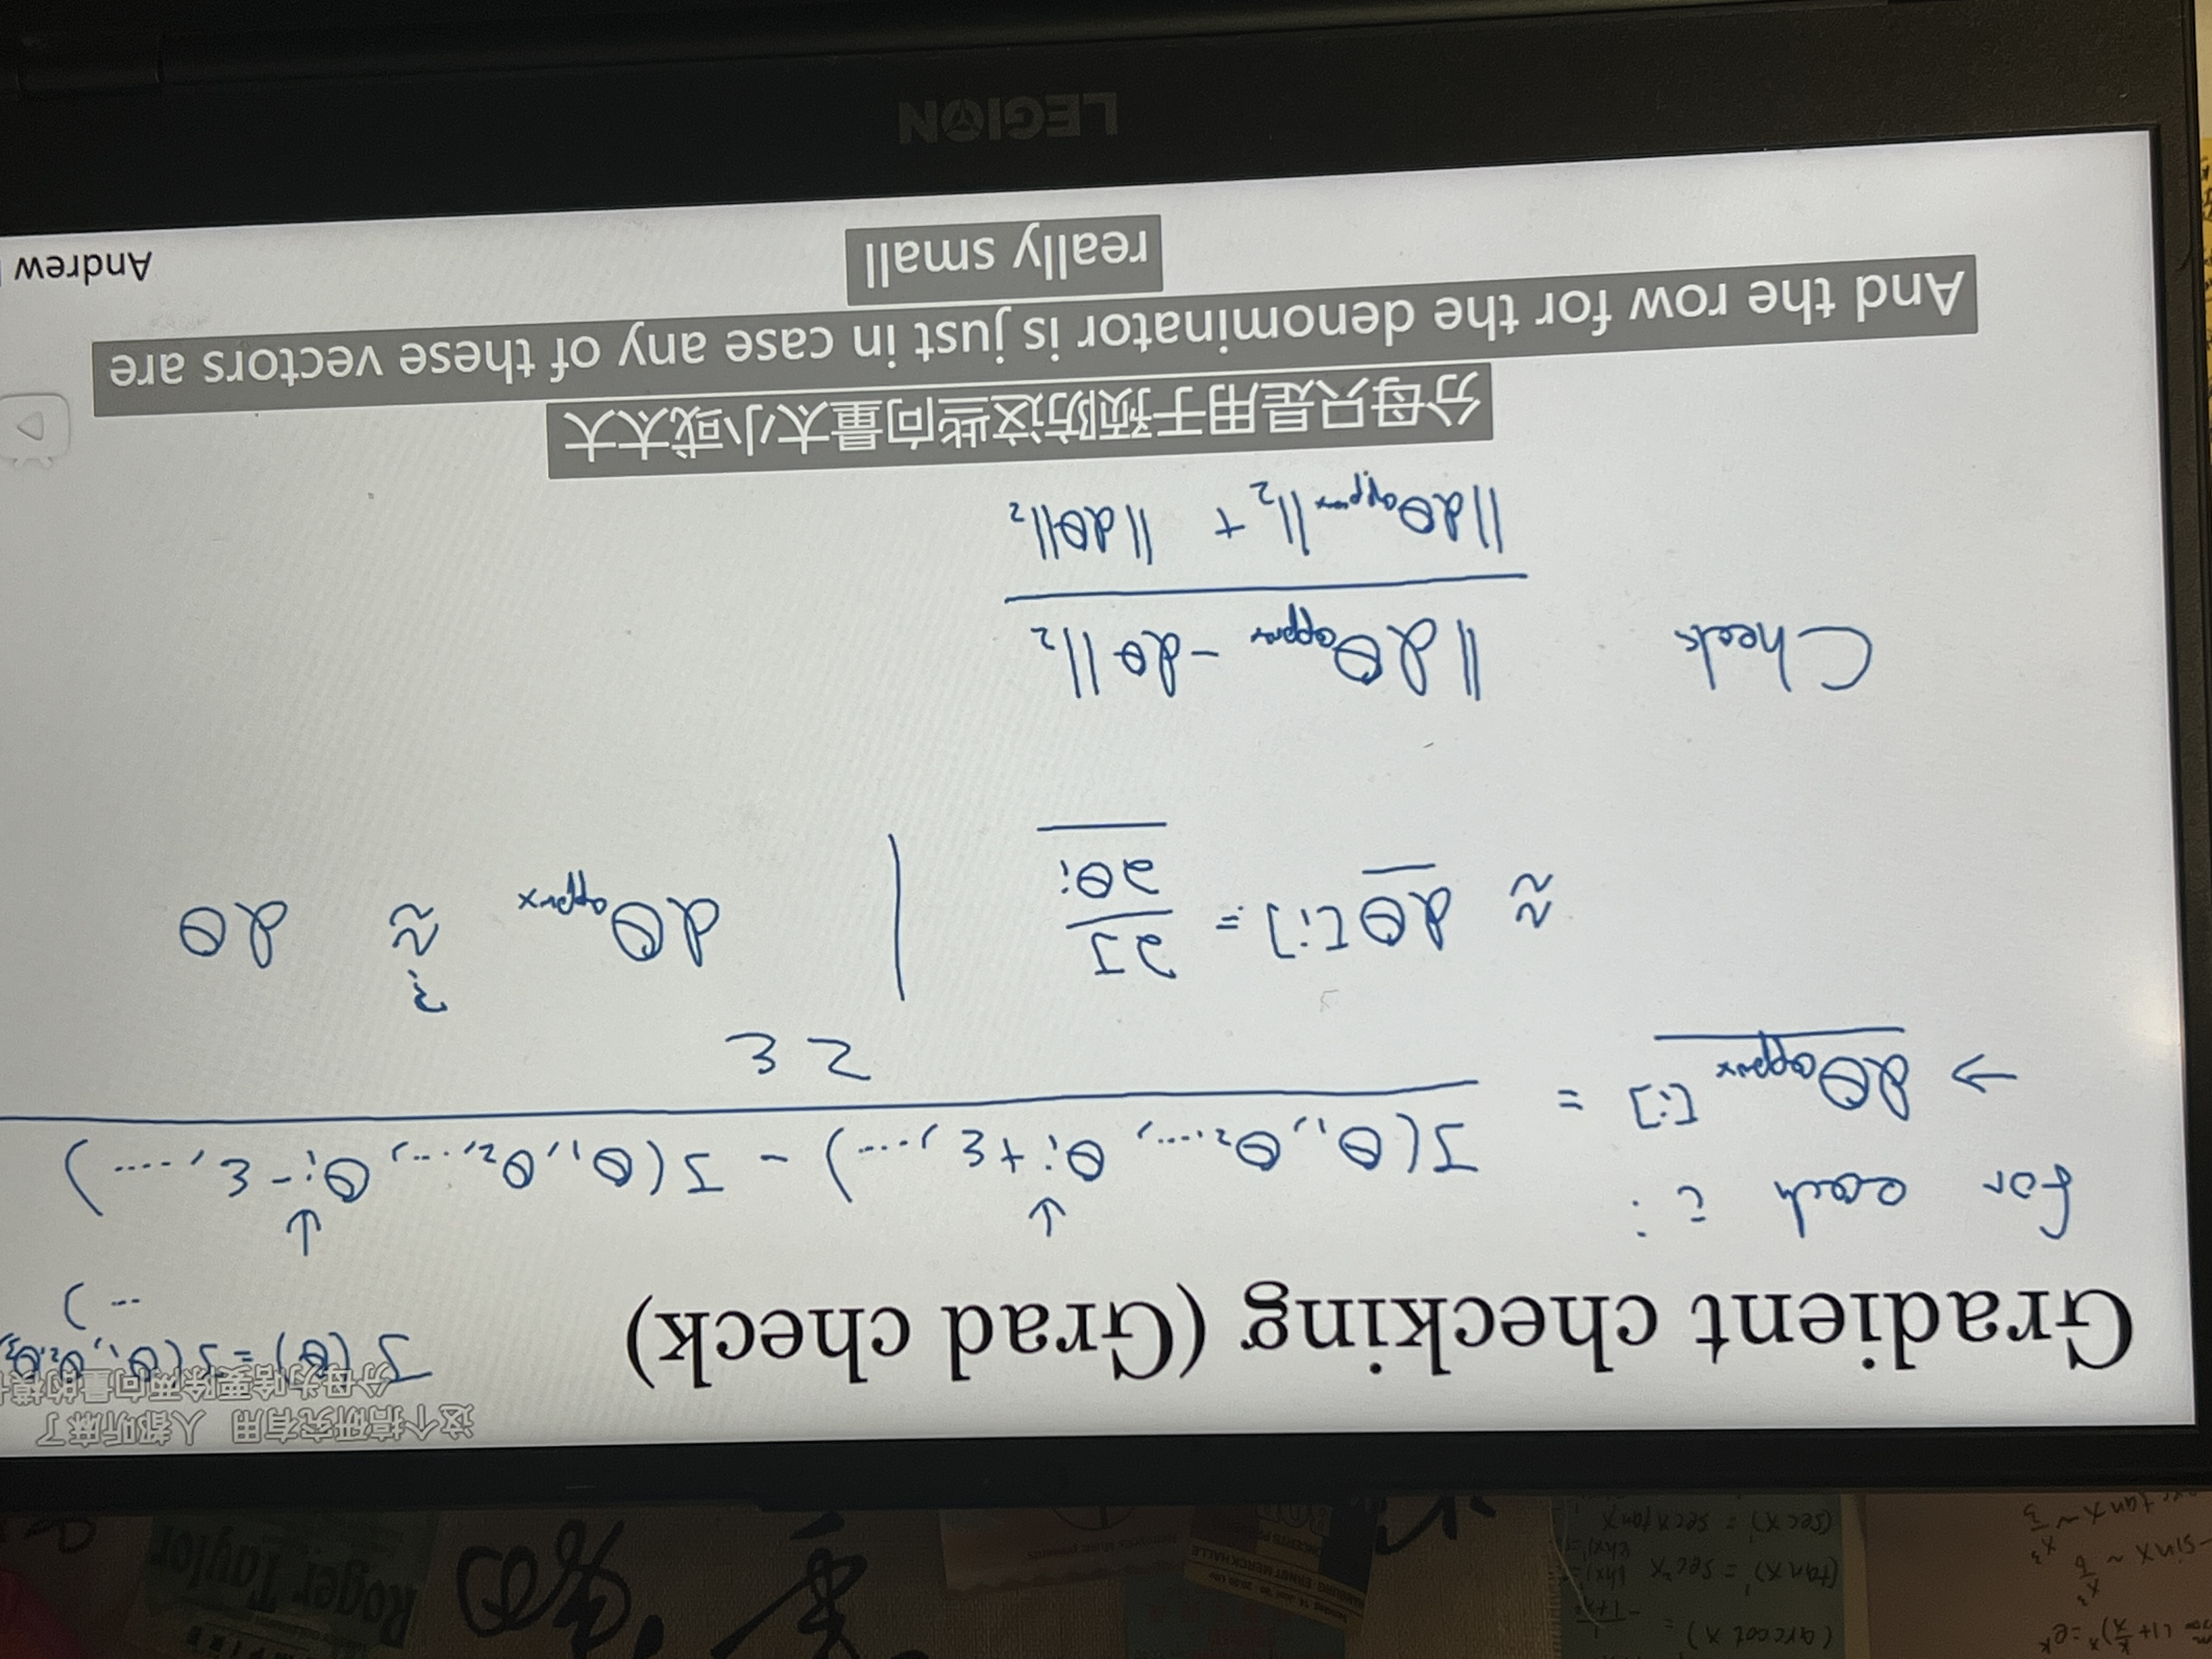 (1+k/x)^x = e^k
-sinx ~ x³/6
tanx ~ x³/3
(arccot x)' =
(tanx)' = sec²x
(secx)' = secxtanx
ERNST MERCK HALLE
Roger Taylor
这个搞研究有用 人都听麻了
分母为啥要除两向量的模
Gradient checking (Grad check)
J(θ) = J(θ₁, θ₂, θ₃,
...)
for each i:
↓ ↓
→ dθapprox [i] = J(θ₁, θ₂, ..., θᵢ+ε, ...) - J(θ₁, θ₂, ..., θᵢ-ε, ....)
2ε
≈ dθ[i] = ∂J/∂θᵢ | dθapprox ≈? dθ
Check ||dθapprox - dθ||₂
||dθapprox||₂ + ||dθ||₂
分母只是用于预防这些向量太小或太大
And the row for the denominator is just in case any of these vectors are
really small
Andrew
LEGION